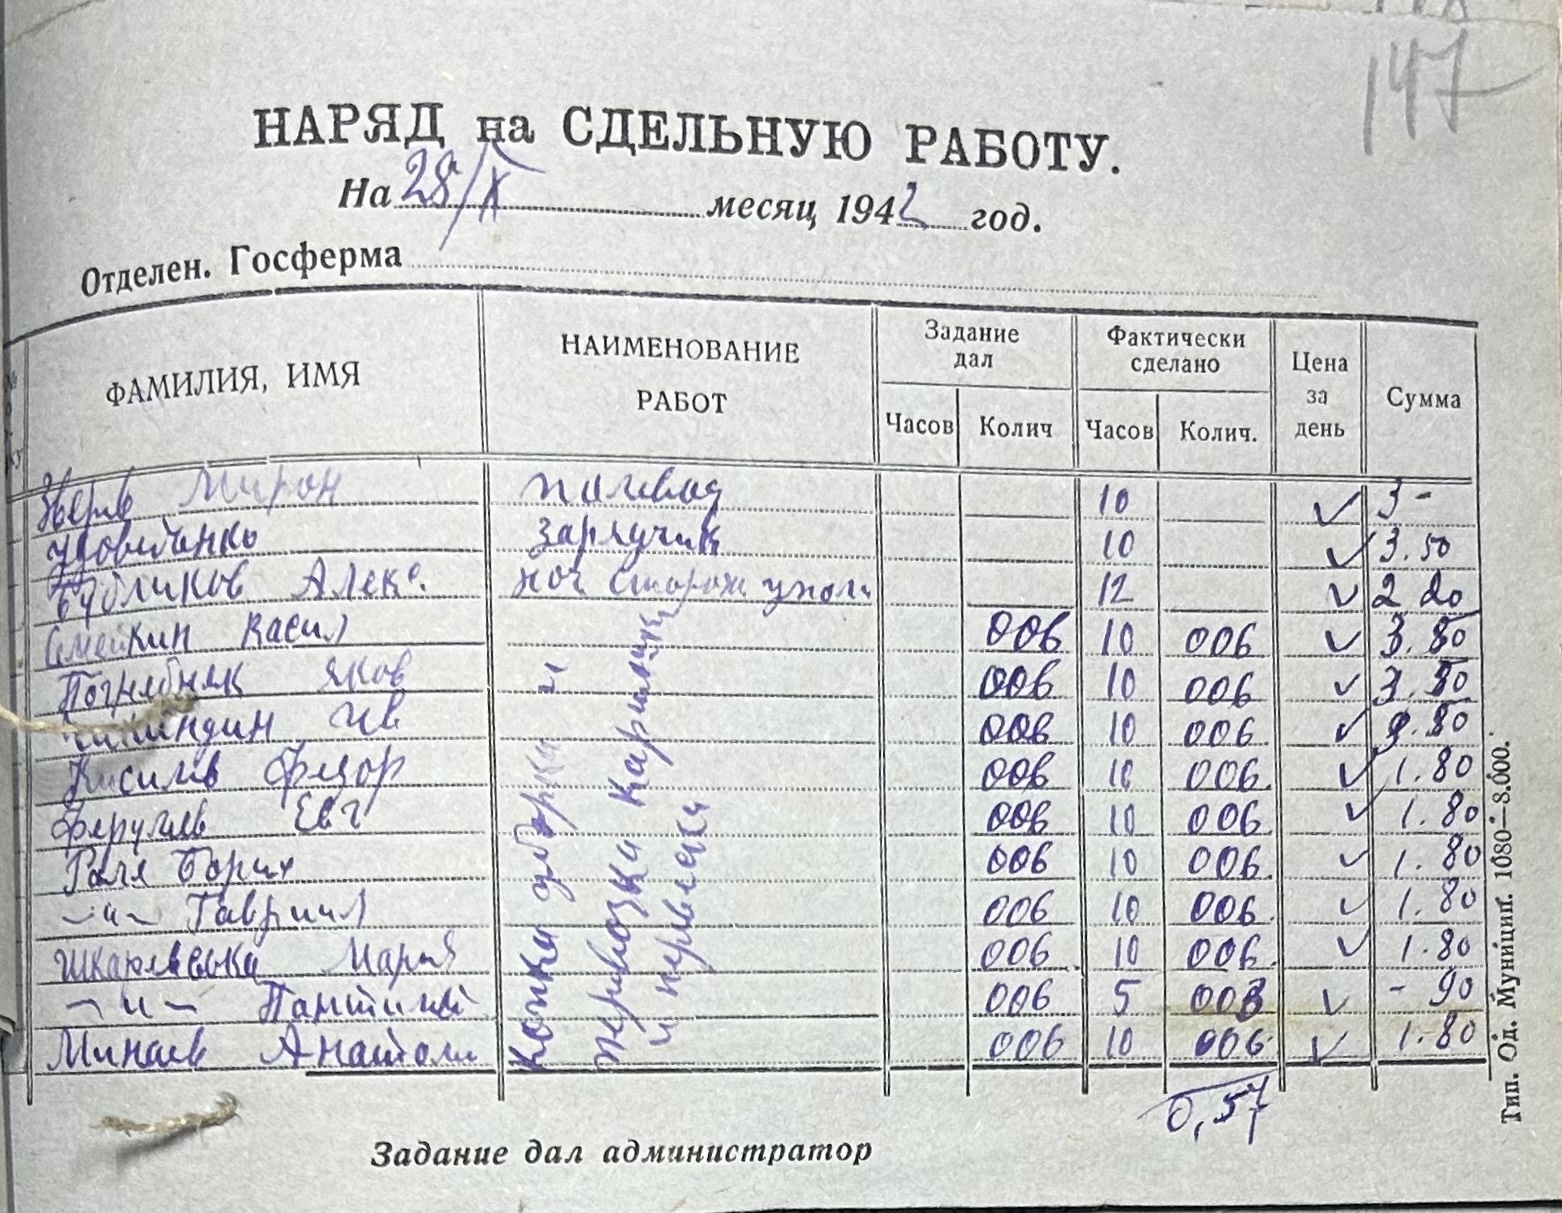 147
НАРЯД на СДЕЛЬНУЮ РАБОТУ.
На 28/X месяц 1942 год.
Отделен. Госферма
ФАМИЛИЯ, ИМЯ НАИМЕНОВАНИЕ РАБОТ Задание дал Фактически сделано Цена за день Сумма
Часов Колич Часов Колич.
Мирон полевод 10 ✓ 3 -
10 ✓ 3.50
Бубликов Алекс. ноч сторож 12 ✓ 2 20
Семейкин Васил 006 10 006 ✓ 3.80
Погребняк Яков 006 10 006 ✓ 3.50
Ив 006 10 006 ✓ .80
Киселев Федор 006 10 006 ✓ 1.80
Евг 006 10 006 ✓ 1.80
Борис 006 10 006 ✓ 1.80
-"- Гавриил 006 10 006 ✓ 1.80
Мария 006 10 006 ✓ 1.80
-"- Пантилей 006 5 003 ✓ - 90
Минаев Анатоли 006 10 006 ✓ 1.80
Копка уборка и
перевозка
и
0,57
Задание дал администратор
Тип. Од. Муницип. 1080—8.000.